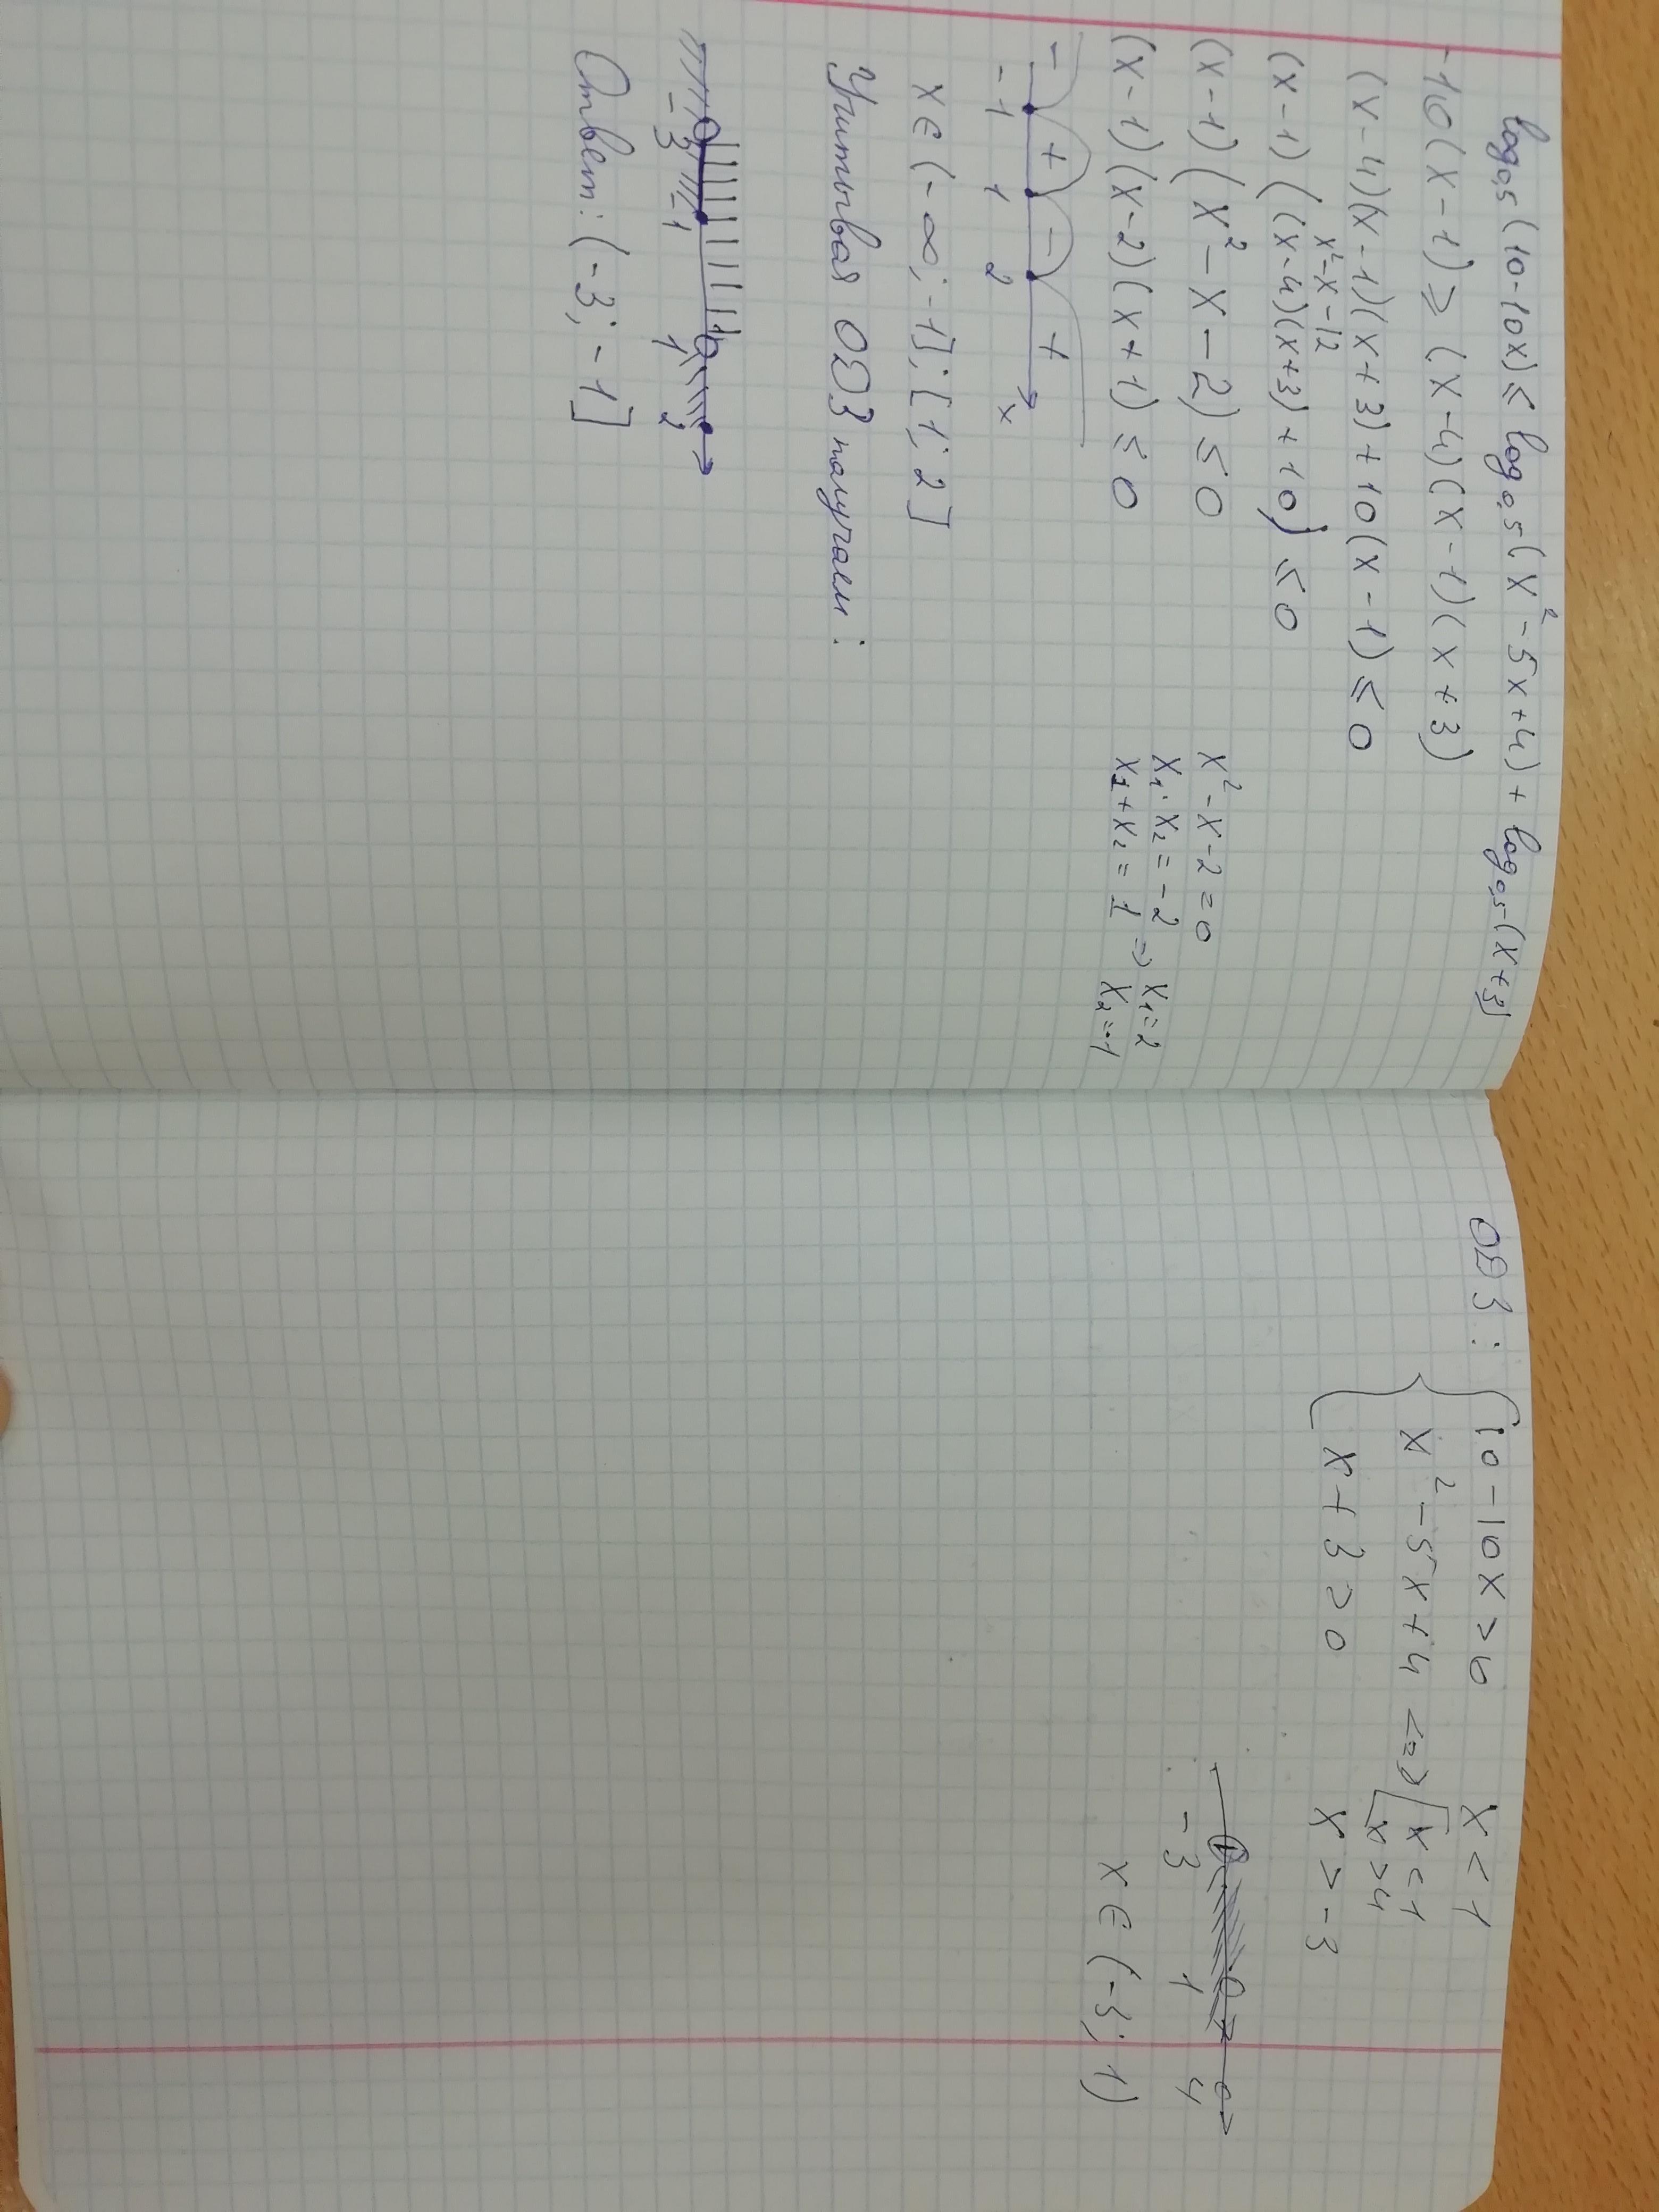 log₀,₅(10-10x) ≤ log₀,₅(x²-5x+4) + log₀,₅(x+3)
-10(x-1) ≥ (x-4)(x-1)(x+3)
(x-4)(x-1)(x+3)+10(x-1) ≤ 0
x²-x-12
(x-1)((x-4)(x+3)+10) ≤ 0
(x-1)(x²-x-2) ≤ 0
(x-1)(x-2)(x+1) ≤ 0
x²-x-2=0
x₁·x₂=-2 => x₁=2
x₁+x₂=1 x₂=-1
- + - +
-1 1 2 x
x∈(-∞;-1];[1;2]
Учитывая ОДЗ получаем:
-3 -1 1 2
Ответ: (-3;-1]
ОДЗ: { 10-10x>0 x<1
x²-5x+4 <=> [ x<1
x>4
x+3>0 x>-3
-3 1 4
x∈(-3;1)